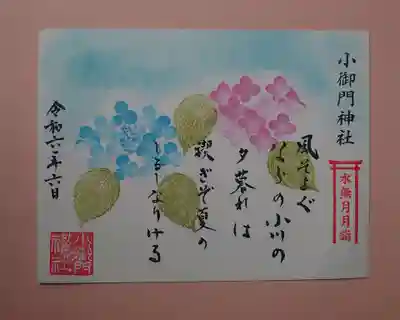 小御門神社
水無月月詣
風そよぐ
ならの小川の
夕暮れは
禊ぎぞ夏の
しるしなりける
令和六年六月